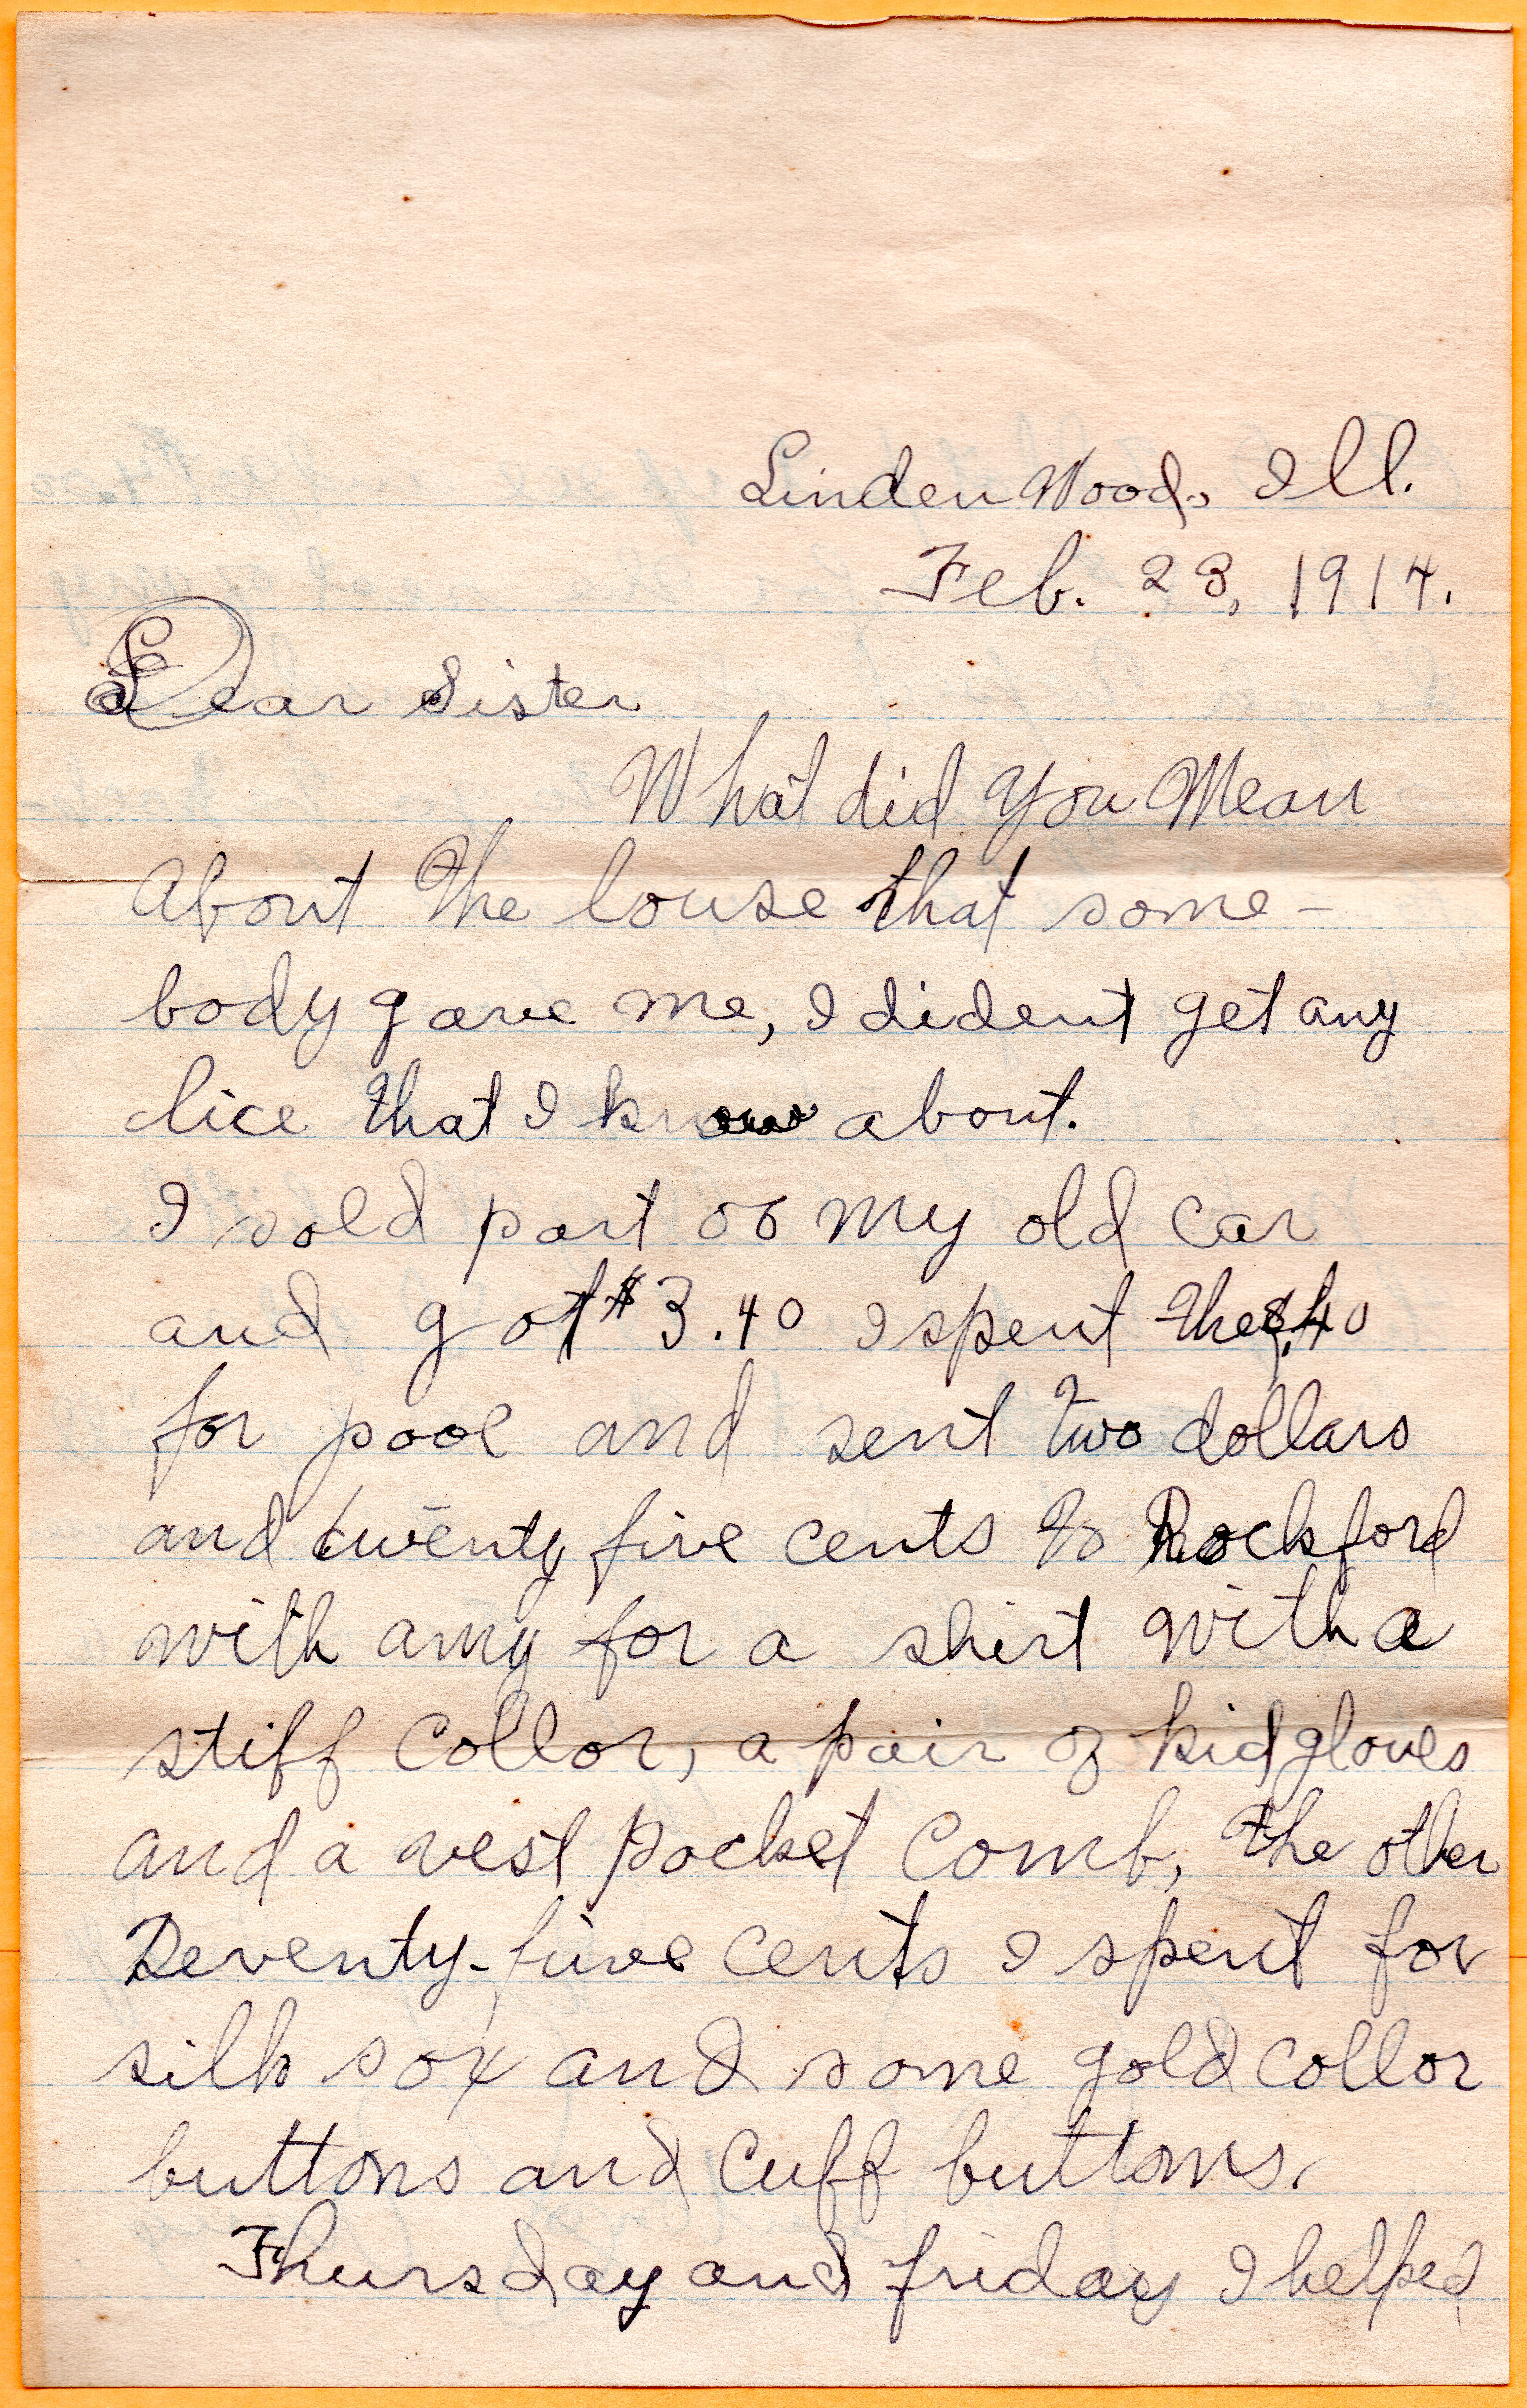 Linden Wood, Ill.
Feb. 23, 1914.
Dear Sister
What did you Mean
About the louse that some-
body gave me, I dident get any
lice that I know about.
I sold part oo my old car
and got $3.40 I spent the $.40
for pool and sent two dollars
and twenty five cents to Rockford
with amy for a shirt with a
stiff collor, a pair of kid gloves
and a vest pocket comb, the other
Seventy-five cents I spent for
silk sox and some gold collor
buttons and cuff buttons.
Thursday and friday I helped